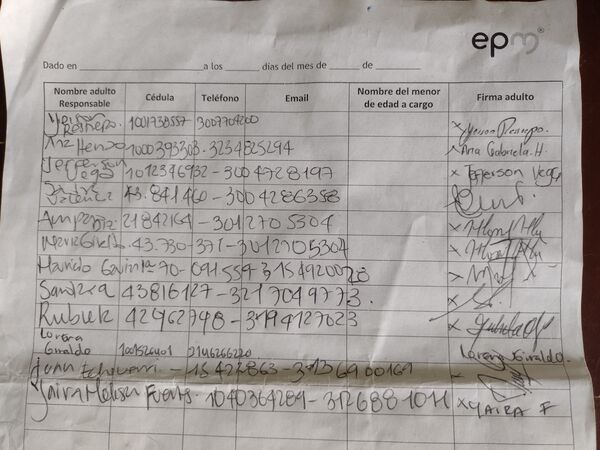 epm®
Dado en ____________ a los ______ días del mes de _____ de ________
Nombre adulto Responsable Cédula Teléfono Email Nombre del menor de edad a cargo Firma adulto
Yerson Restrepo. 1001738557 3007704200 x Yerson Restrepo.
Ana Henao 1000393303. 3234825294 x Ana Gabriela. H.
Jefferson Vega 1012376932 - 3004728197 x Jefferson Vega
43.841460 - 3004286358 x
Amparo 21842164 - 3012705304 x
43.730-371 - 3012705304 x
Mauricio Gaviria 70-091.559 3154920028 x
Sandra 43816127 - 3217049773. x
Rubiela 42962798 - 3194127023 x
Lorena Giraldo 2146266220 Lorena Giraldo.
Juan Echeverri - 15427863 - 3136900161 x
Yaira Melissa Fuentes. 1040364284 - 3126881011 x YAIRA F